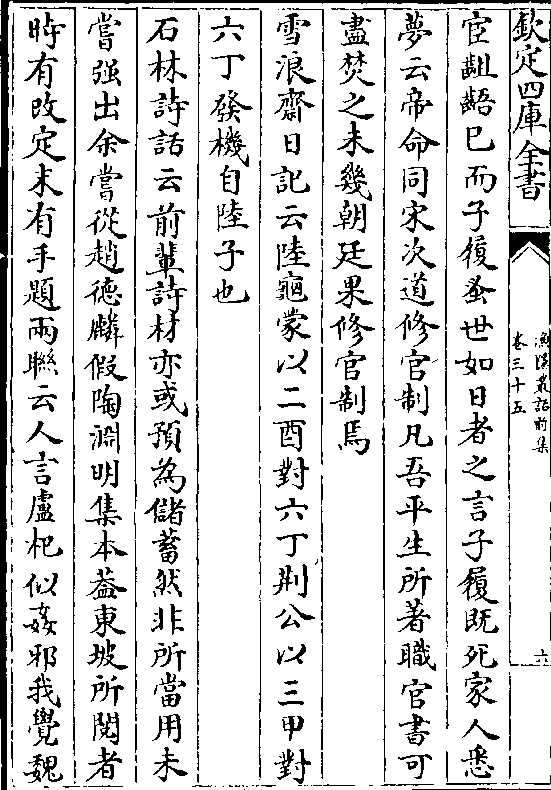 欽定四庫全書
漁隱叢話前集
卷三十五
六
宦齟齬已而子履蚤世如日者之言子履既死家人悉
夢云帝命同宋次道修官制凡吾平生所著職官書可
盡焚之未幾朝廷果修官制焉
雪浪齋日記云陸龜蒙以二酉對六丁荆公以三甲對
六丁發機自陸子也
石林詩話云前輩詩材亦或預為儲蓄然非所當用未
嘗强出余嘗從趙德麟假陶淵明集本葢東坡所閱者
時有改定末有手題兩聯云人言盧杞似姦邪我覺魏